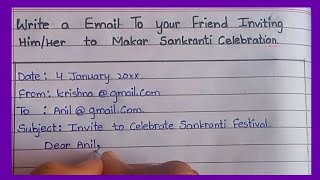 Write a Email To your Friend Inviting
Him/Her to Makar Sankranti Celebration.
Date: 4 January 20xx.
From: Krishna @gmail.com
To : Anil@gmail.Com.
Subject: Invite to Celebrate Sankranti Festival.
Dear Anil,